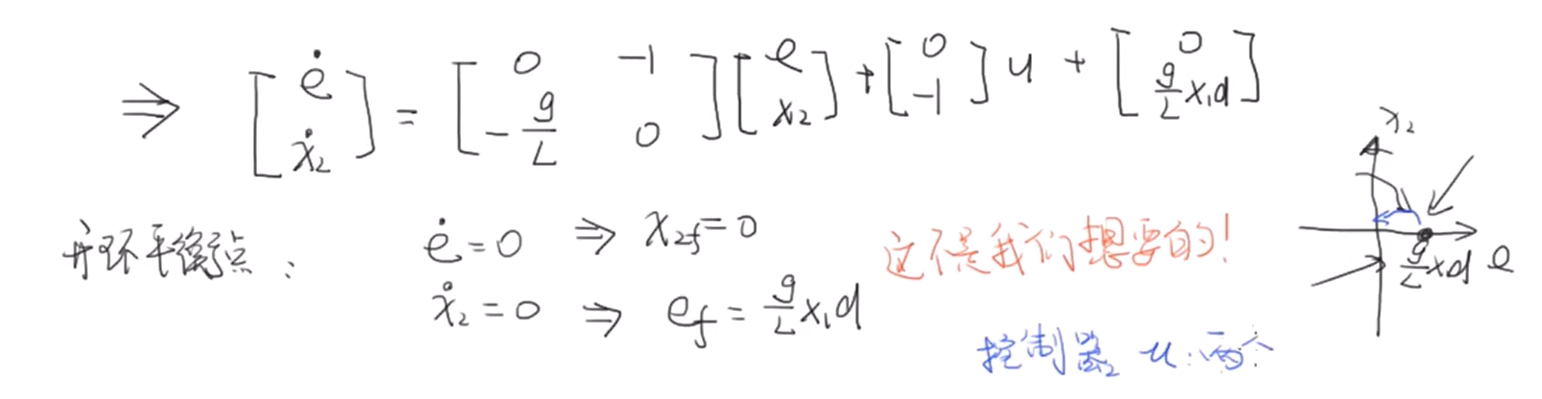 ⇒ [ė; ẋ₂] = [0 -1; -g/L 0] [e; x₂] + [0; -1] u + [0; g/L x₁d]
开环平衡点: ė = 0 ⇒ x₂f = 0
ẋ₂ = 0 ⇒ ef = g/L x₁d
这不是我们想要的!
控制器 u:两个
x₂
g/L xd e